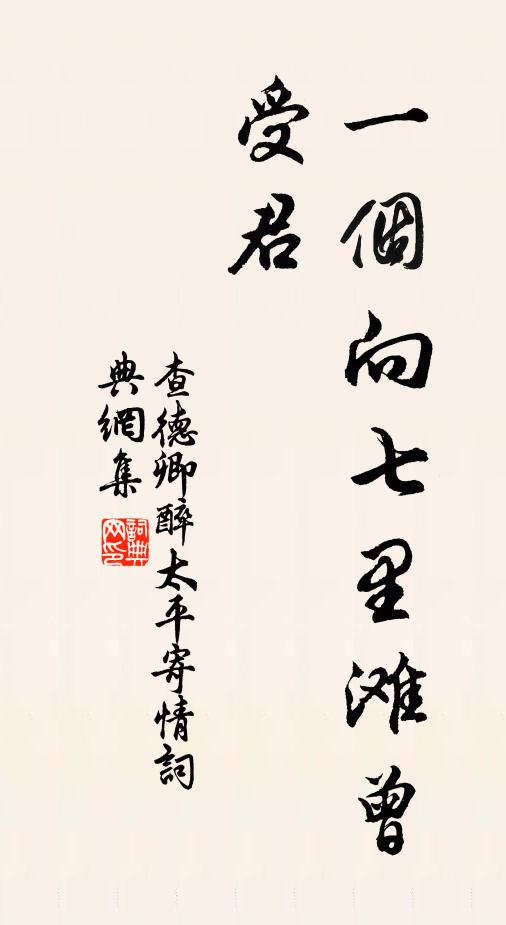 一個向七里滩曾
受君
查德卿醉太平寄情詞
典網集
詞典
网印